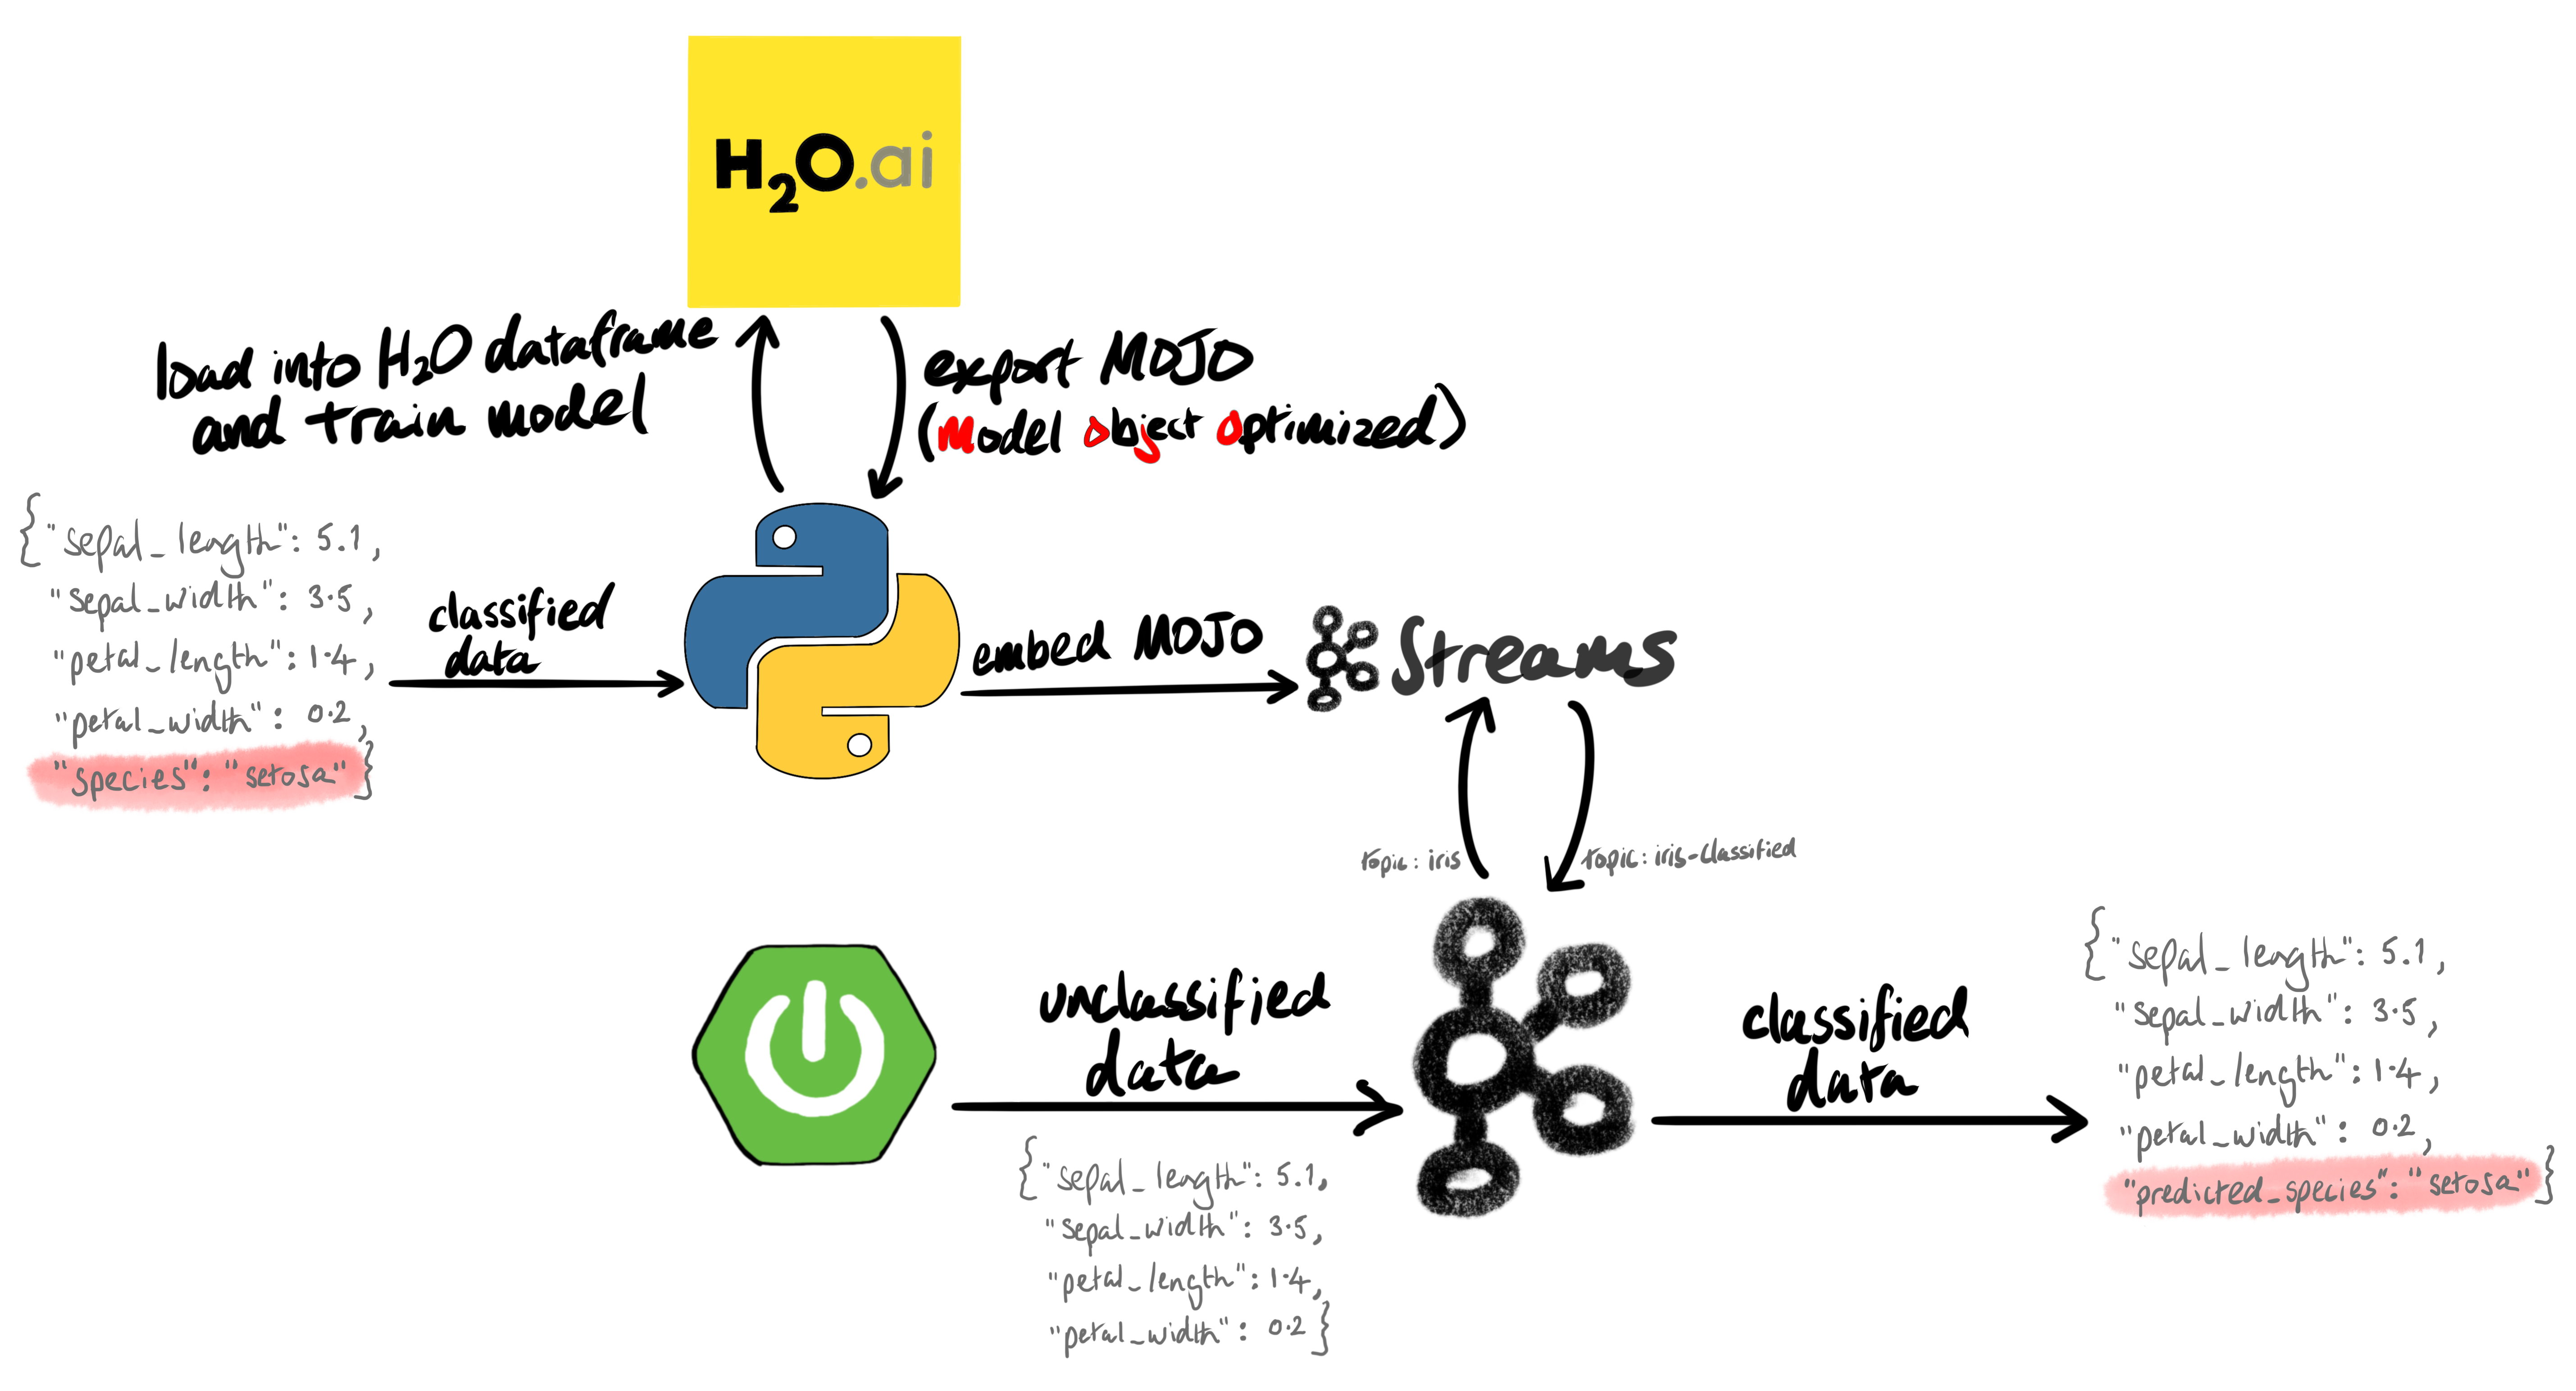 H2O.ai
load into H2O dataframe
and train model
export MOJO
(Model Object Optimized)
{"sepal_length": 5.1,
"sepal_width": 3.5,
"petal_length": 1.4,
"petal_width": 0.2,
"species": "setosa"}
classified
data
embed MOJO
Streams
topic: iris
topic: iris-classified
unclassified
data
{"sepal_length": 5.1,
"sepal_width": 3.5,
"petal_length": 1.4,
"petal_width": 0.2}
classified
data
{"sepal_length": 5.1,
"sepal_width": 3.5,
"petal_length": 1.4,
"petal_width": 0.2,
"predicted_species": "setosa"}